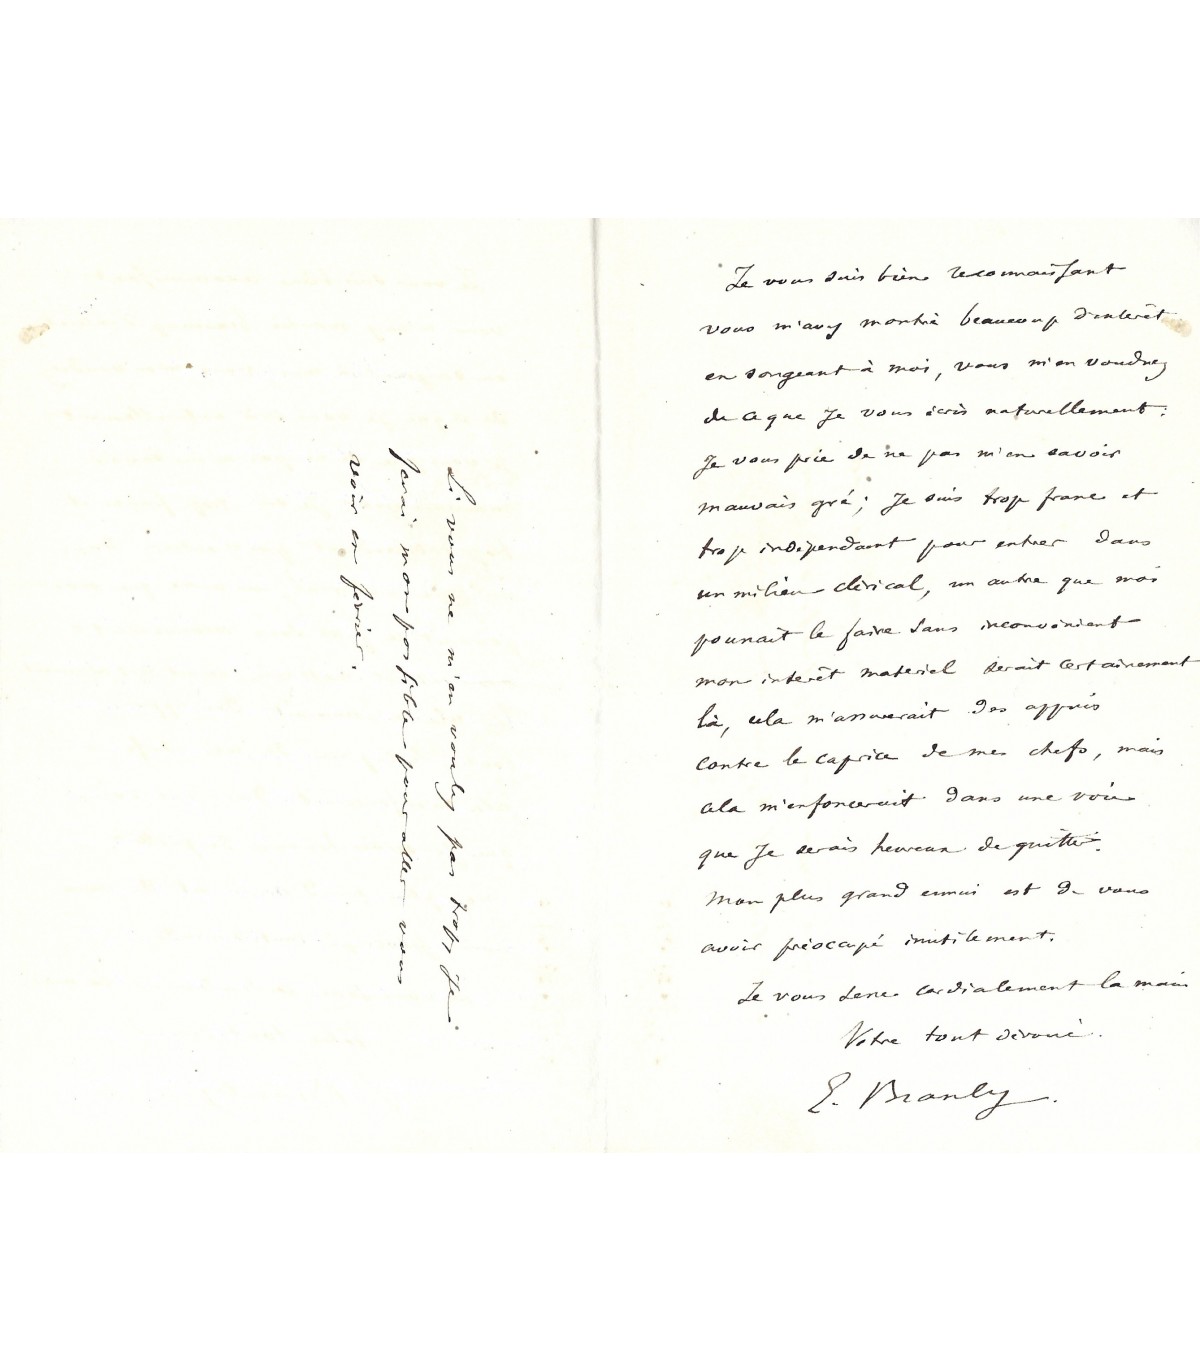 Je vous suis bien reconnaissant
vous m'avez montré beaucoup d'intérêt
en songeant à moi, vous m'en voudrez
de ce que je vous écris naturellement.
Je vous prie de ne pas m'en savoir
mauvais gré; je suis trop franc et
trop indépendant pour entrer dans
un milieu clérical, un autre que moi
pourrait le faire sans inconvénient
mon interêt materiel serait certainement
là, cela m'assurerait des appuis
contre le caprice de mes chefs, mais
cela m'enfoncerait dans une voie
que je serais heureux de quitter.
Mon plus grand ennui est de vous
avoir préoccupé inutilement.
Je vous serre cordialement la main
Votre tout dévoué.
E. Branly.
Si vous ne m'en voulez pas trop, je
ferai mon possible pour aller vous
revoir en février.